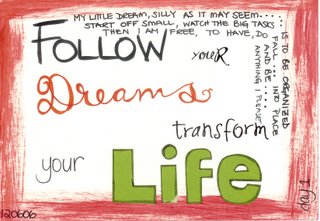 MY LITTLE DREAM, SILLY AS IT MAY SEEM.....
START OFF SMALL, WATCH THE BIG TASKS
THEN I AM FREE, TO HAVE, DO
AND BE....
ANYTHING I PLEASE
IS TO BE ORGANIZED
FALL.... INTO PLACE
FOLLOW
youR
Dreams
transform
your
Life
120606
Day 1